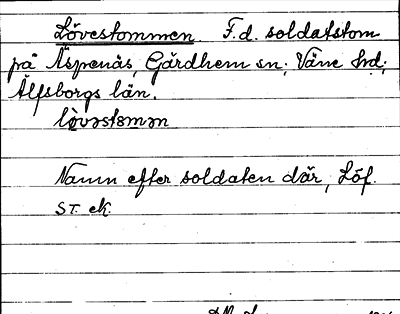 Lövestommen. F.d. soldatstom
på Äspenäs, Gärdhem sn; Väne hd;
Älfsborgs län.
lø̀vəstɷmən
Namn efter soldaten där, Löf.
ST. ek.